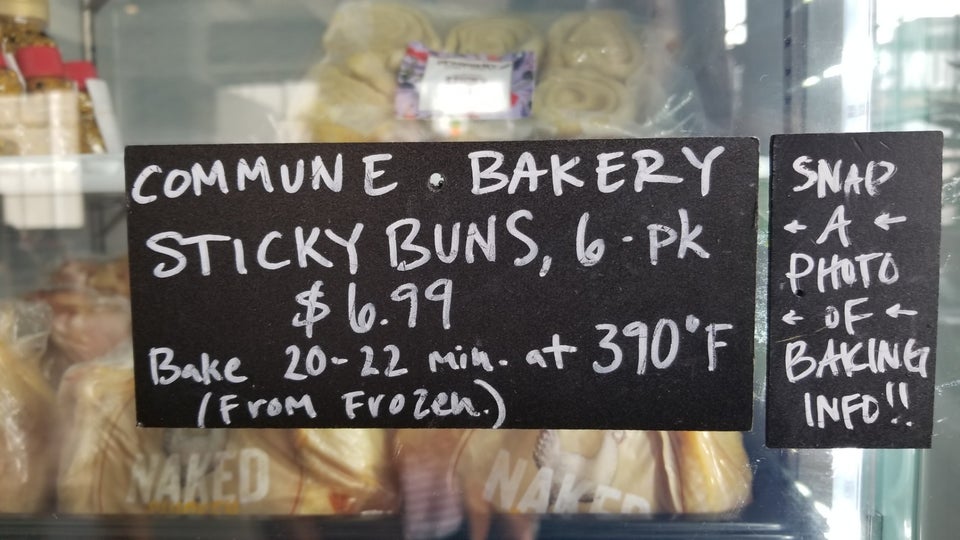 COMMUNE • BAKERY
STICKY BUNS, 6-pk
$6.99
Bake 20-22 min. at 390°F
(From Frozen.)
SNAP
← A ←
PHOTO
← OF ←
BAKING
INFO!!
NAKED
NAKED